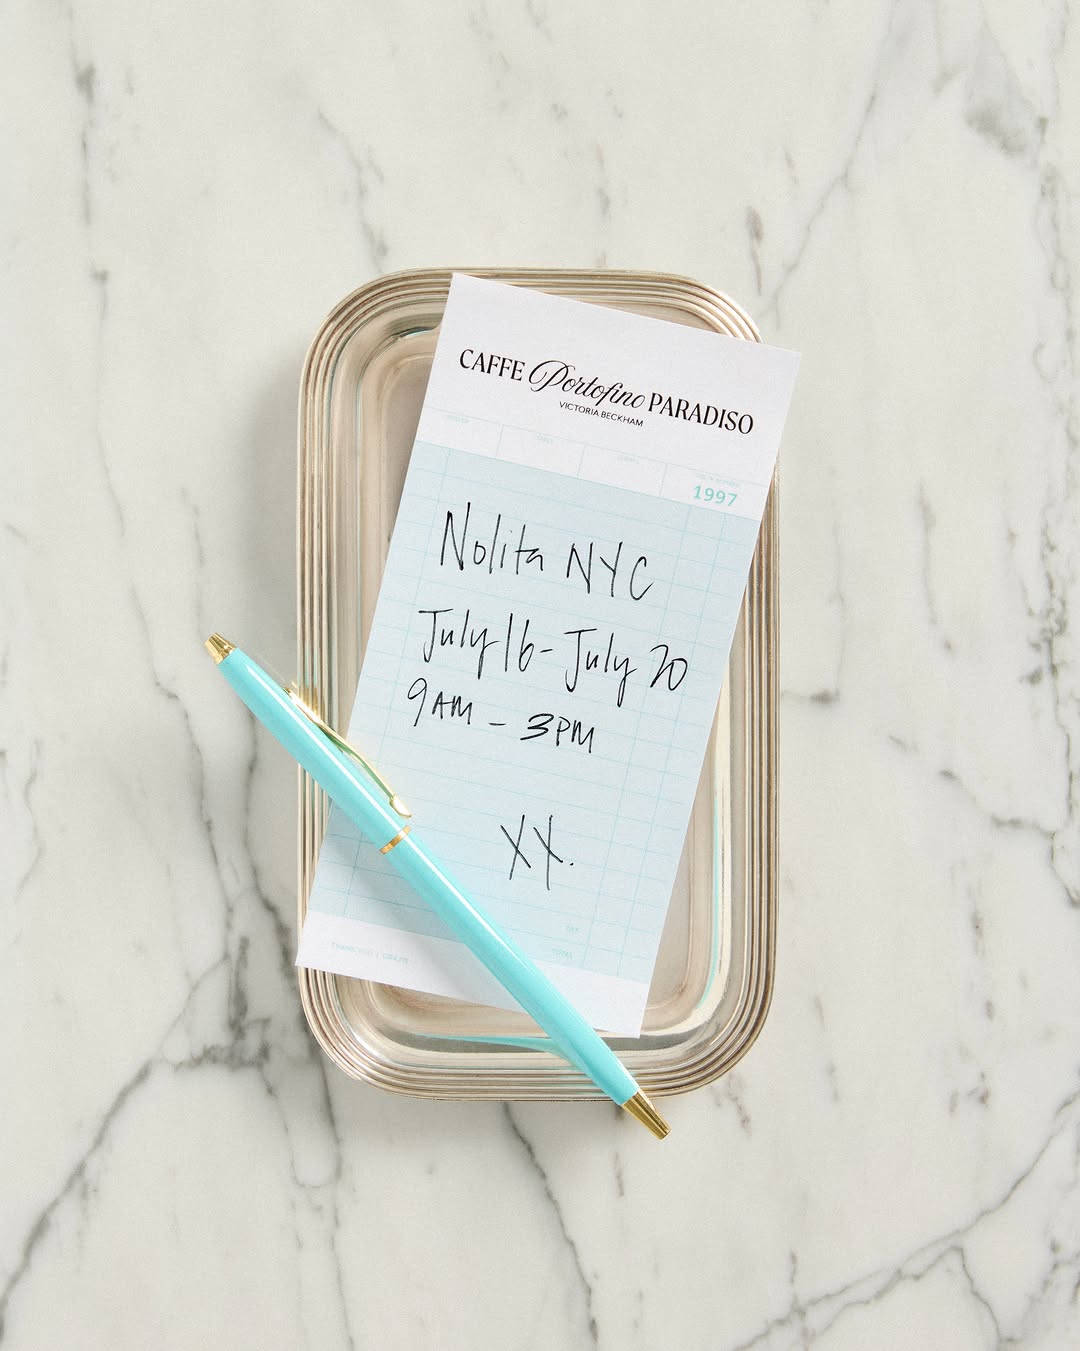 CAFFE Portofino PARADISO
VICTORIA BECKHAM
1997
Nolita NYC
July 16 - July 20
9AM - 3PM
XX.
TAX
TOTAL
THANK YOU | GRAZIE